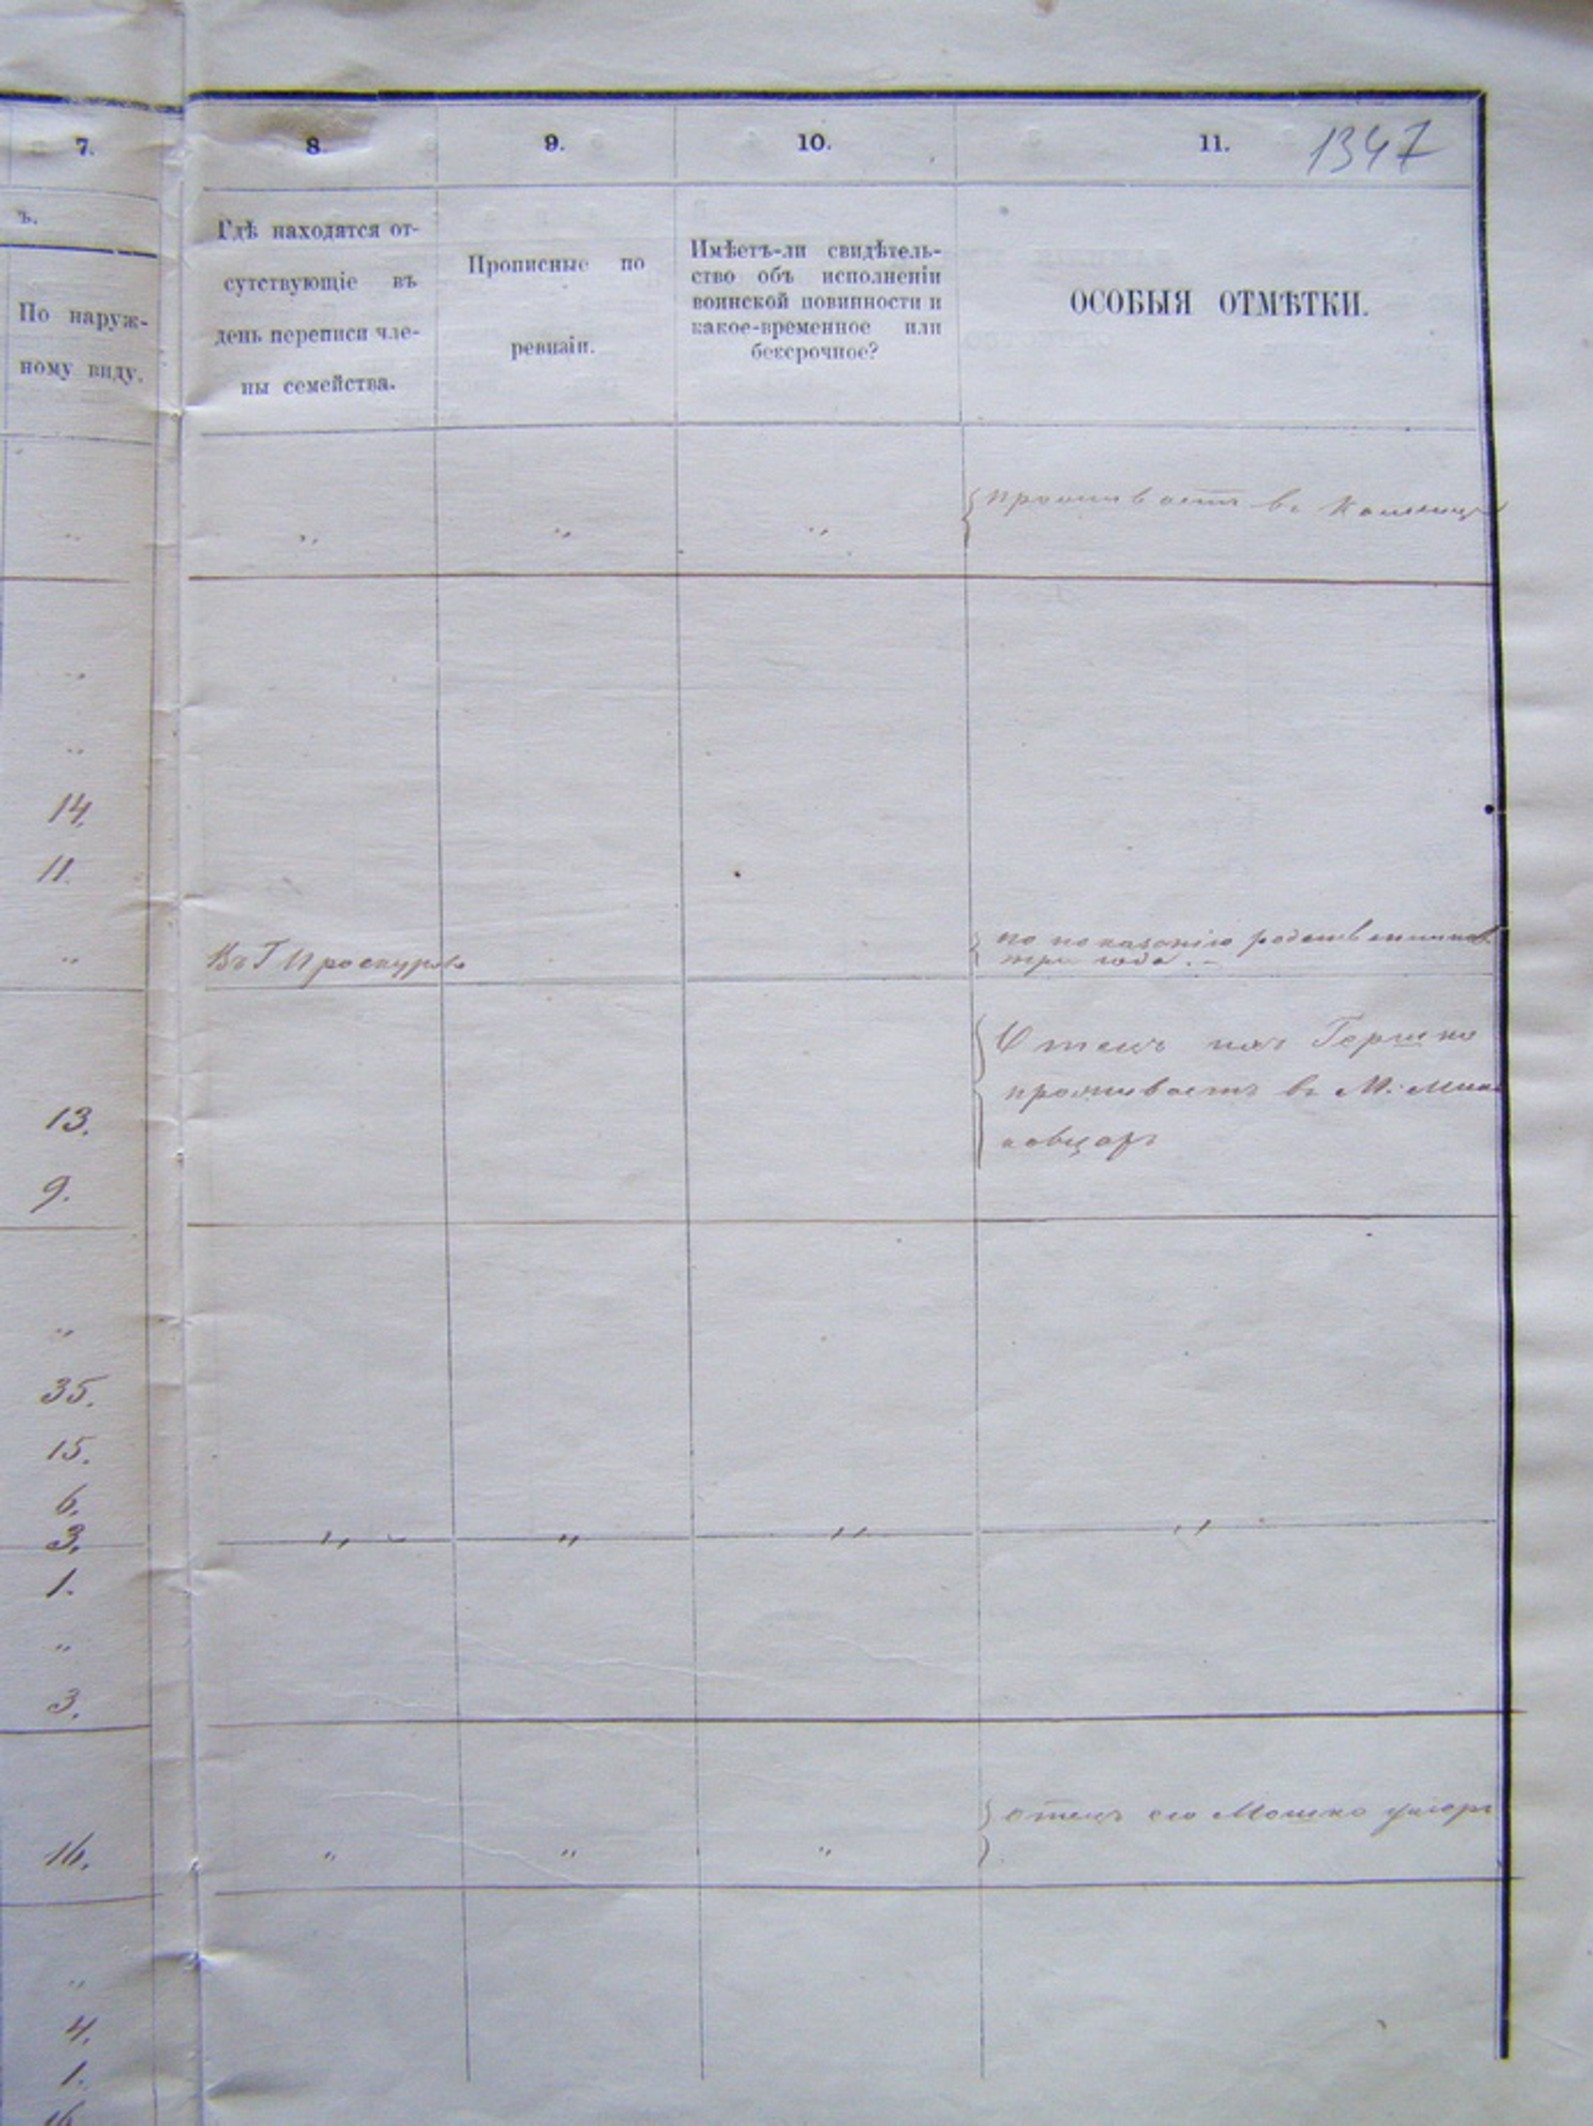 7.
8.
9.
10.
11.
1347
ъ.
По наруж-
ному виду.
Гдѣ находятся от-
сутствующіе въ
день переписи чле-
ны семейства.
Прописные по
ревизіи.
Имѣетъ-ли свидѣтель-
ство объ исполненіи
воинской повинности и
какое-временное или
безсрочное?
ОСОБЫЯ ОТМѢТКИ.
„ „ „ „ проживаетъ въ
„
„
14.
11.
„ Въ Г Проскуровѣ
по показанію родственниковъ
три года. –
Отецъ ихъ Гершко
проживаетъ въ М. Мин
ковцахъ
13.
9.
„
35.
15.
6.
3. „ „ „ „
1.
„
3.
отецъ его Мошко умеръ
16. „ „ „
„
4.
1.
16